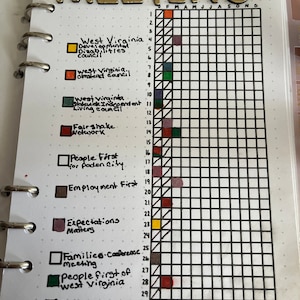 J F M A M J J A S O N D
West Virginia
Developmental
Disabilities
council
West Virginia
council
West Virginia
Statewide Independent
Living council
Fair shake
Network
People First
for Paden City
Employment First
Expectations
Matters
Families-Conference
meeting
People first of
West Virginia
1
2
3
4
5
6
7
8
9
10
11
12
13
14
15
16
17
18
19
20
21
22
23
24
25
26
27
28
29